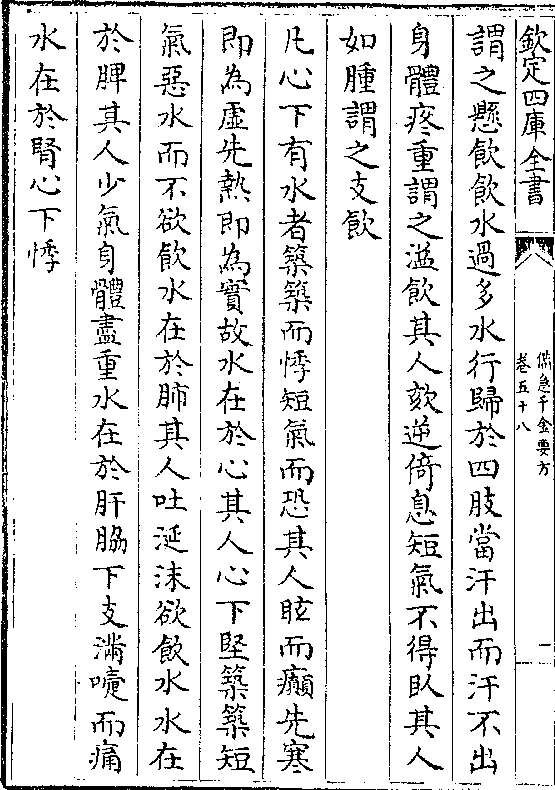 欽定四庫全書
備急千金要方
卷五十八
二
謂之懸飲飲水過多水行歸於四肢當汗出而汗不出
身體疼重謂之溢飲其人欬逆倚息短氣不得臥其人
如腫謂之支飲
凡心下有水者築築而悸短氣而恐其人眩而癲先寒
即為虛先熱即為實故水在於心其人心下堅築築短
氣惡水而不欲飲水在於肺其人吐涎沫欲飲水水在
於脾其人少氣身體盡重水在於肝脇下支滿嚏而痛
水在於腎心下悸